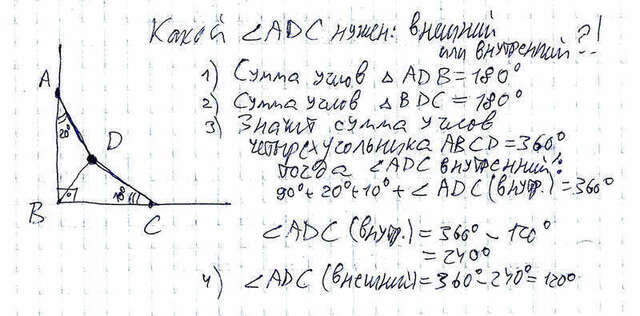 Какой ∠ADC нужен: внешний
или внутренний?!
1) Сумма углов △ ADB = 180°
2) Сумма углов △ BDC = 180°
3) Значит сумма углов
четырехугольника ABCD = 360°
тогда ∠ADC внутренний:
90° + 20° + 10° + ∠ADC (внутр.) = 360°
∠ADC (внутр.) = 360° - 120°
= 240°
4) ∠ADC (внешний) = 360° - 240° = 120°
A
20°
D
10°
B
C